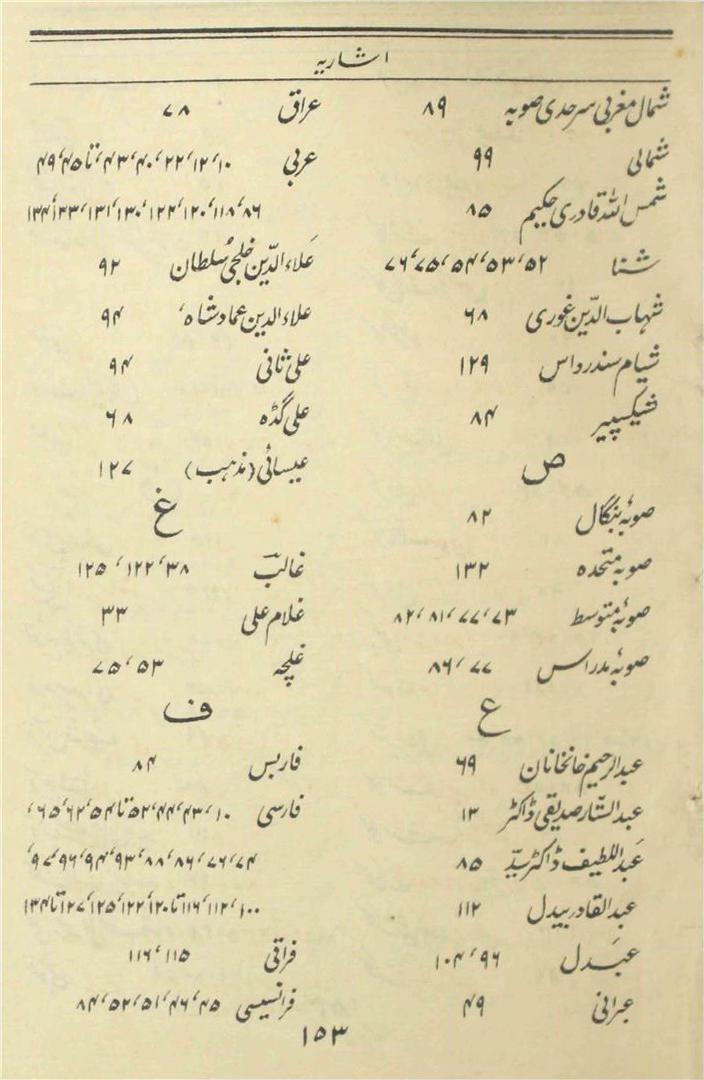 اشاریہ
شمال مغربی سرحدی صوبہ ۸۹
شمالی ۹۹
شمس اللہ قادری حکیم ۸۵
شنا ۵۲، ۵۳، ۵۴، ۷۵، ۷۶
شہاب الدّین غوری ۶۸
شیام سندر داس ۱۲۹
شیکسپیر ۸۴
ص
صوبۂ بنگال ۸۲
صوبہ متحدہ ۱۳۲
صوبۂ متوسط ۷۳، ۷۷، ۸۱، ۸۲
صوبۂ مدراس ۷۷، ۸۶
ع
عبدالرحیم خانخانان ۶۹
عبدالستّار صدیقی ڈاکٹر ۱۳
عبداللطیف ڈاکٹر سیّد ۸۵
عبدالقادر بیدل ۱۱۲
عبدل ۹۶، ۱۰۴
عبرانی ۴۹
عراق ۷۸
عربی ۱۰، ۱۲، ۲۲، ۴۰، ۴۳، تا ۴۵، ۴۹
۸۶، ۱۱۸، ۱۲۰، ۱۲۲، ۱۳۰، ۱۳۱، ۱۳۳، ۱۳۴
علاء الدّین خلجی سلطان ۹۲
علاء الدین عماد شاہ، ۹۴
علی ثانی ۹۴
علی گڈہ ۶۸
عیسائی (مذہب) ۱۲۷
غ
غالبؔ ۳۸، ۱۲۲، ۱۲۵
غلام علی ۳۳
غلچہ ۵۳، ۷۵
ف
فاربس ۸۴
فارسی ۱۰، ۴۳، ۴۴، ۵۲ تا ۵۴، ۶۲، ۶۵،
۷۴، ۷۶، ۸۶، ۸۸، ۹۳، ۹۴، ۹۶، ۹۷،
۱۰۰، ۱۱۲، ۱۱۶ تا ۱۲۰، ۱۲۲، ۱۲۵، ۱۲۷ تا ۱۳۴
فراقی ۱۱۵، ۱۱۶
فرانسیسی ۴۵، ۴۶، ۵۱، ۵۲، ۸۴
۱۵۳